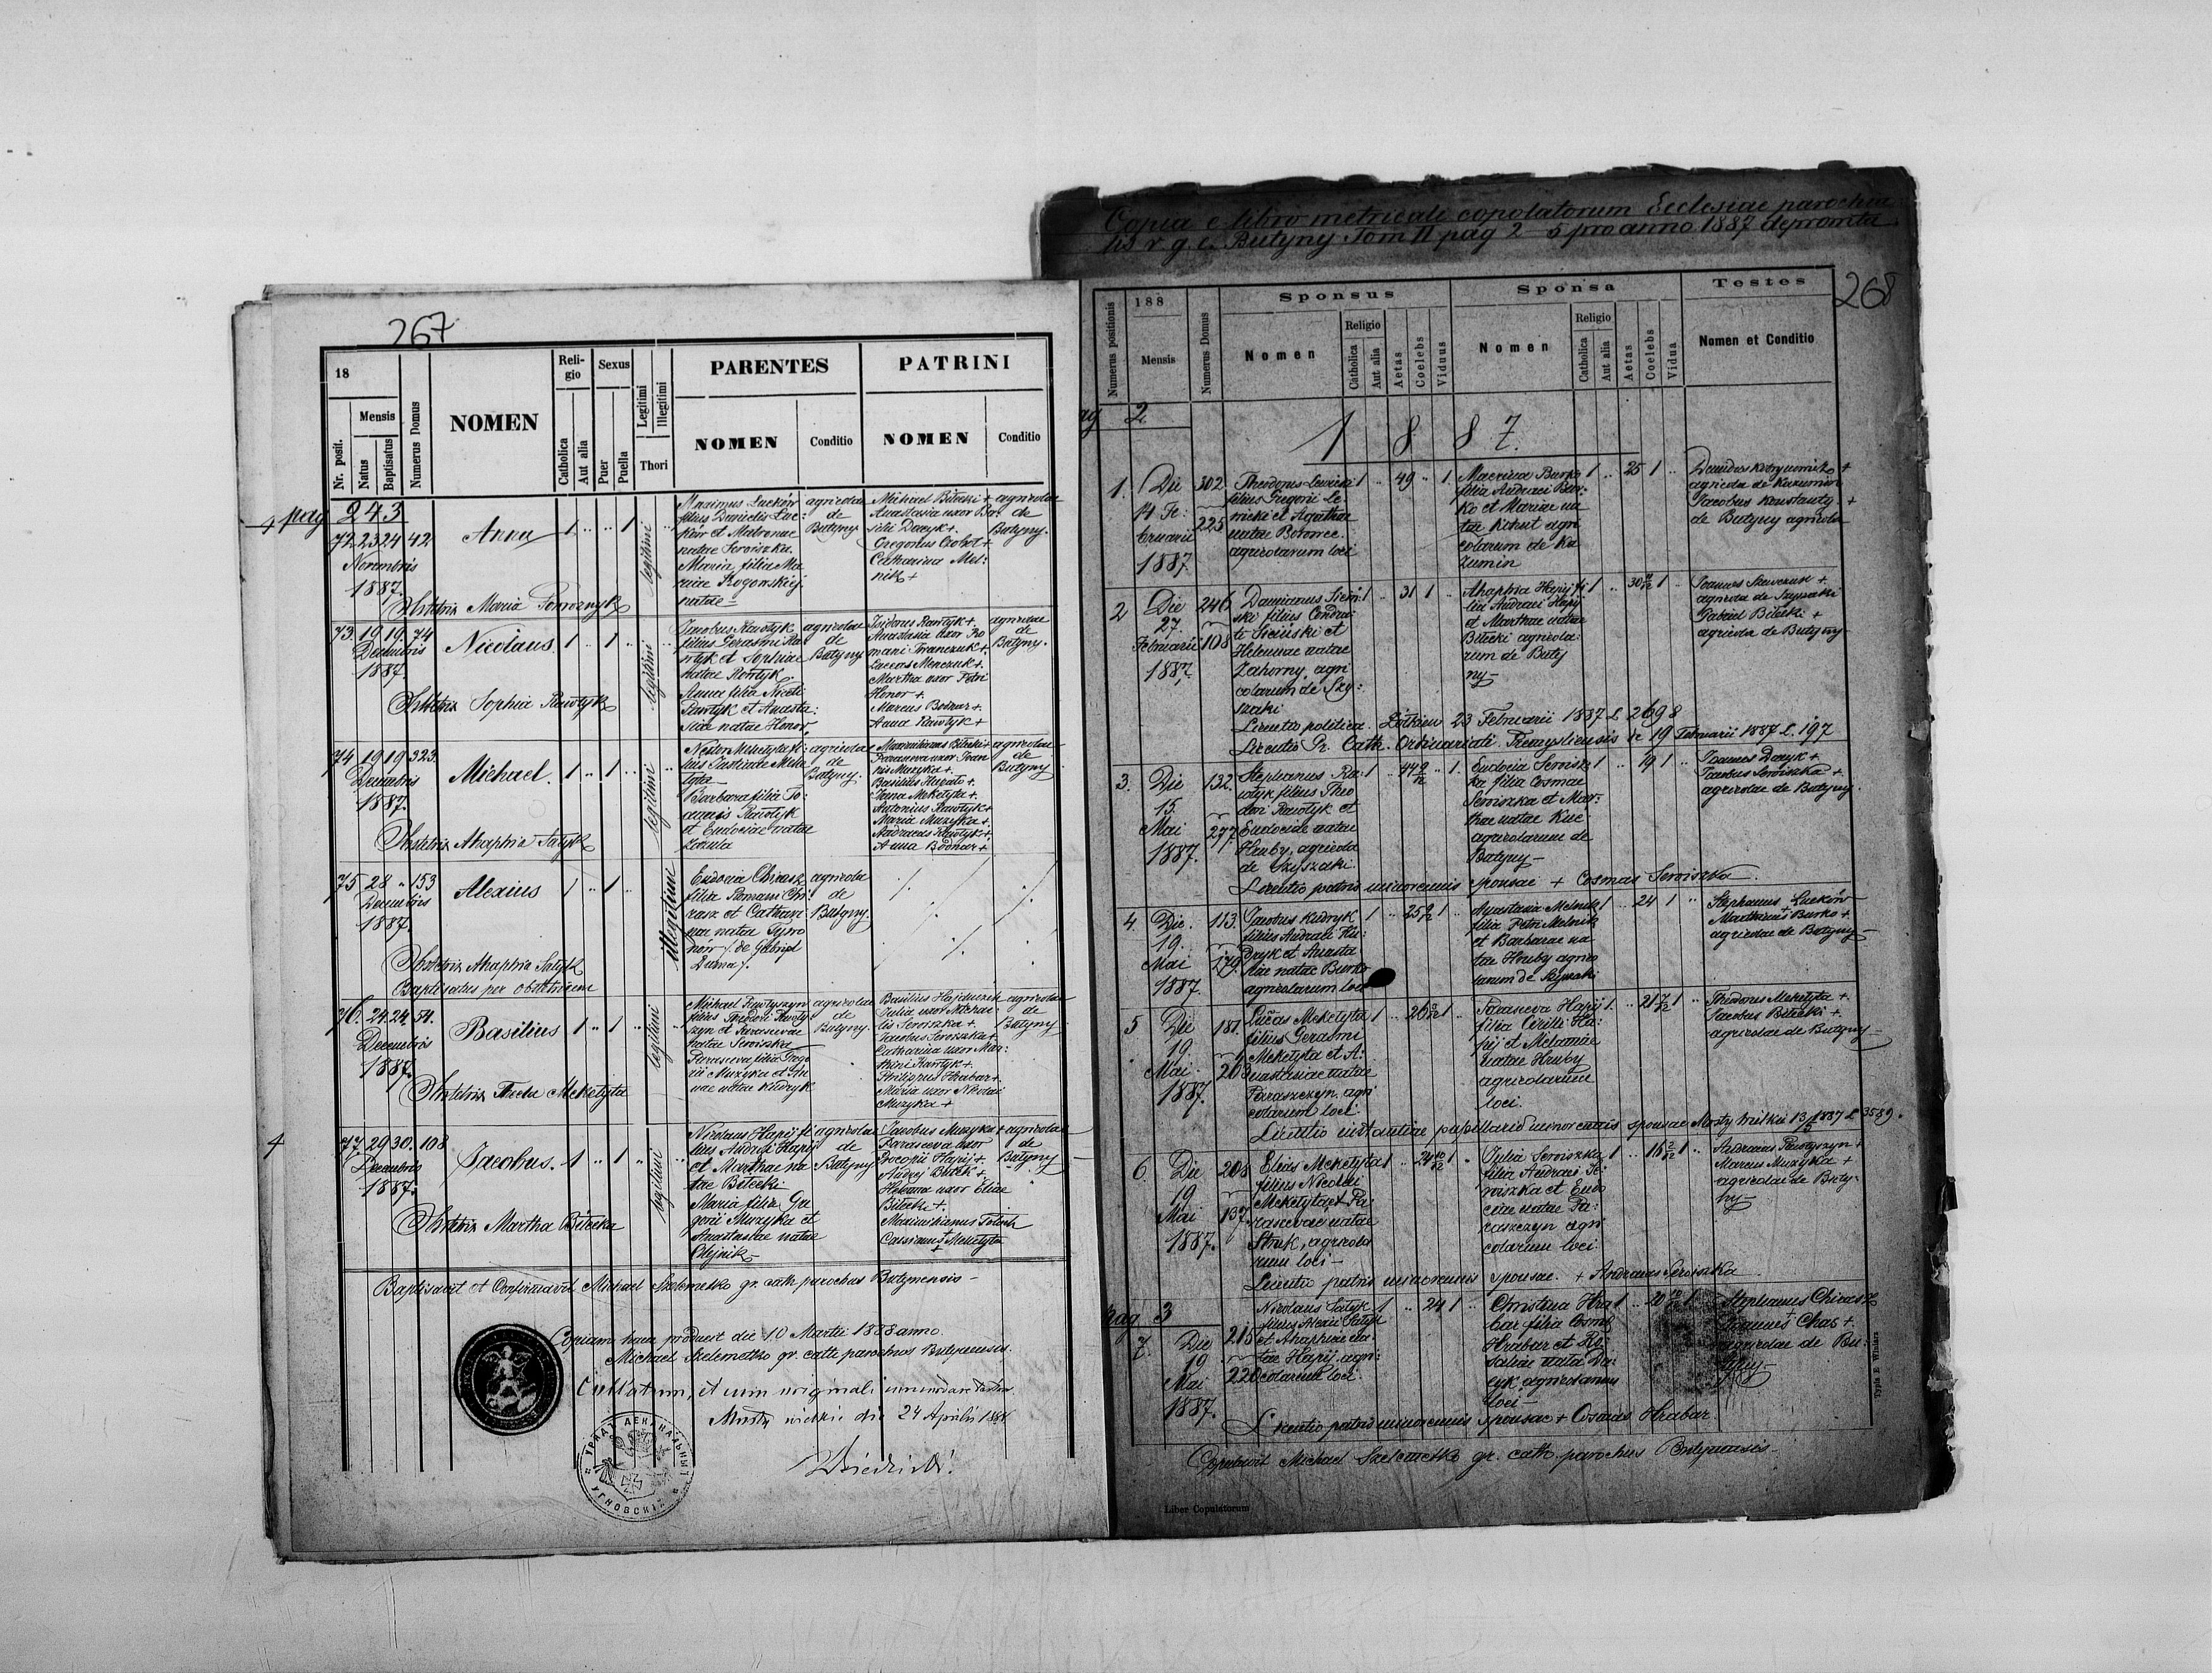 267
18
Mensis
Nr. posit.
Natus
Baptisatus
Numerus Domus
NOMEN
Reli-
gio
Catholica
Aut alia
Sexus
Puer
Puella
Legitimi
Illegitimi
Thori
PARENTES
NOMEN
Conditio
PATRINI
NOMEN
Conditio
pag 243
72 23 24 42
Novembris
1887.
Anna
1 " " 1
legitimi
Maximus Łucków
filius Danielis Łuc:
ków et Matronae
natae Seroiszka.
Maria filia Ma
natae
agricolae
de
Butyny
Michael Bilecki +
Anastasia uxor
Gregorius
Catharina Mel:
nik +
agricolae
de
Butyny.
Obstetrix Maria
73. 19 19. 74
Decembris
1887
Nicolaus
1 " 1 "
legitimi
Jacobus Rawtyk
filius Gerasimi Ra
wtyk et Sophiae
natae Rawtyk
Anna filia
Rawtyk et Anasta:
siae natae Honor.
agricolae
de
Butyny
Isidorus Rawtyk +.
Anastasia uxor Ro
mani Iwanczuk +.
Martha uxor Petri
Honor +.
Marcus Bodnar +.
Anna Rawtyk +
agricolae
de
Butyny.
Obstetrix Sophia Rawtyk
74 19 19 323.
Decembris
1887.
Michael.
1 " 1 "
legitimi
Nestor Meketyta fi:
lius Justinae Meke
tyta
Barbara filia Jo:
annis Rawtyk
et Eudociae natae
agricolae
de
Butyny.
Maximilianus Bilecki +
Parasceva uxor Joan
nis Muzyka +.
Basilius
Anna Meketyta +.
Antonius Rawtyk +.
Maria Muzyka +.
Andreas Rawtyk +.
Anna Bodnar +
agricolae
de
Butyny
Obstetrix Ahaphia Satyk
75 28 " 153
Decembris
1887.
Alexius
1 " 1 "
illegitimi
Eudocia Chirasz
filia Romani Chi
rasz et Cathari
nae natae
de Gabriel
agricola
de
Butyny.
Obstetrix Ahaphia Satyk
Baptisatus per obstetricem
76. 24. 24. 54.
Decembris
1887.
Basilius
1 " 1 "
legitimi
Michael Rawtyszyn
filius Theodori Rawty
szyn et Parascevae
natae Seroiszka
Parasceva filia Grego
rii Muzyka et An
nae natae Kudryk
agricolae
de
Butyny.
Basilius Hajduczek
Julia uxor Michae
lis Seroiszka +.
Jacobus Seroiszka +.
Catharina uxor Mar:
tini Rawtyk +.
Philippus Hrabar +.
Maria uxor Nicolai
Muzyka +
agricolae
de
Butyny
Obstetrix Thecla Meketyta
77. 29 30. 108
Decembris
1887.
Jacobus.
1 " 1 "
legitimi
Nicolaus Hapij fi
lius Andreae Hapij
et Marthae na
tae Bilecki
Maria filia Gre
gorii Muzyka et
Anastasiae natae
Olejnik
agricolae
de
Butyny
Jacobus Muzyka +
Parasceva uxor
Procopii Hapij +.
Andrij
Helena uxor Eliae
Bilecki +.
Maximilianus
Cassianus Meketyta
+
agricolae
de
Butyny
Obstetrix Martha Bilecka
Baptisavit et Confirmavit Michael Szelemetko gr. cath. parochus Butynensis
Copiam hanc produxit die 10 Martii 1888 anno.
Michael Szelemetko gr. cath. parochus Butynensis.
Collatum, et cum originali
Mosty wielkie die 24 Aprilis 1888
УРЯДЪ ДЕКАНАЛЬНЫЙ
УГНОВСКІЙ
Copia e libro metricali copulatorum Ecclesiae parochia
lis r. g. c. Butyny Tom II pag 2–5 pro anno 1887 depromta
268
Numerus positionis
188
Mensis
Numerus Domus
Sponsus
Nomen
Religio
Catholica
Aut alia
Aetas
Coelebs
Viduus
Sponsa
Nomen
Religio
Catholica
Aut alia
Aetas
Coelebs
Vidua
Testes
Nomen et Conditio
pag 2
1887.
1. Die
14 Fe:
bruarii
1887
302
225
Theodorus Lewicki
filius Gregorii Le
wicki et Agathae
natae
agricolarum loci
1 " 49 " 1
Macrina Burko
filia Andreae Bur:
ko et Mariae na
tae Kohut agri
colarum de Ka
zumin
1 " 25 1 "
agricola de Kazumin
Jacobus Konstanty +
de Butyny agricola
2 Die
27.
Februarii
1887.
246
108
Damianus Siciń:
ski filius Conra
ti Siciński et
Helenae natae
Zahorny, agri
colarum de Szy:
szaki
1 " 31 1 "
Ahaphia Hapij fi
lia Andreae Hapij
et Marthae natae
Bilecki agricola
rum de Buty
ny
1 " 30 10/12 1
Joannes Szewczuk +.
agricola de Szyszaki
Gabriel Bilecki +
agricola de Butyny
Licentio politica. Żółkiew 23 Februarii 1887 L. 2698
Licentio Gr. Cath. Ordinariati Premysliensis de 19 Februarii 1887 L. 197
3. Die
15.
Mai
1887.
132.
277.
Stephanus Ra:
wtyk filius Theo
dori Rawtyk et
Eudociae natae
Hruby, agricola
de Szyszaki.
1 " 44 9/12 " 1.
Eudocia Seroisz
ka filia Cosmae
Seroiszka et Mar:
thae natae Kuc
agricolarum de
Butyny
1 " 19 1 "
Joannes Dacyk +
Jacobus Seroiszka +.
agricolae de Butyny.
Licentio patris minorennis sponsae + Cosmas Seroiszka.
4. Die.
19.
Mai
1887.
113.
279.
Jacobus Kudryk
filius Andreae Ku:
dryk et Anasta
siae natae Burko
agricolarum loci
1 " 25 1
Anastasia Melnik
filia Petri Melnik
et Barbarae na
tae Hruby agrico
larum de Szyszaki
1. " 24 1 "
Stephanus Łucków
Burko +.
agricolae de Butyny
5 Die
19.
Mai
1887.
181.
Lucas Meketyta
filius Gerasimi
Meketyta et A:
nastasiae natae
Paraszczyn, agri
colarum loci.
1 " 26 1 "
Parasceva Hapij
filia Cirilli Ha:
pij et Melaniae
natae Hruby
agricolarum
loci.
1. " 21 7/12 1 "
Theodorus Meketyta +.
Jacobus Bilecki +.
agricolae de Butyny
Licentio instantiae pupillaris minorennis sponsae Mosty wielkie 13/5 1887 L 3589.
6. Die
19
Mai
1887.
208
137
Elias Meketyta
filius Nicolai
Meketyta et Pa:
rascevae natae
Struk, agricola
rum loci
1 " 24 10/12 1 "
Julia Seroiszka
filia Andreae Se:
roiszka et Eudo
ciae natae Pa:
raszczyn agri
colarum loci.
1 " 16 2/12 1 "
Andreas Rawtyszyn +
Marcus Muzyka +
agricolae de Buty:
ny
Licentio patris minorennis sponsae. + Andreas Seroiszka
pag 3
7. Die
19
Mai
1887.
215
220
Nicolaus Satyk
filius Alexii Satyk
et Ahaphiae na
tae Hapij, agri:
colarum loci.
1 " 24 1 "
Christina Hra
bar filia Cosmae
Hrabar et Ro
saliae nata Da:
cyk agricolarum
loci
1 " 20 10/12 1
Stephanus Chirasz
+
Joannes Chas +.
agricolae de Bu:
tyny
Licentio patris minorennis sponsae + Cosmas Hrabar.
Copulavit Michael Szelemetko gr. cath. parochus Butynensis
Liber Copulatorum